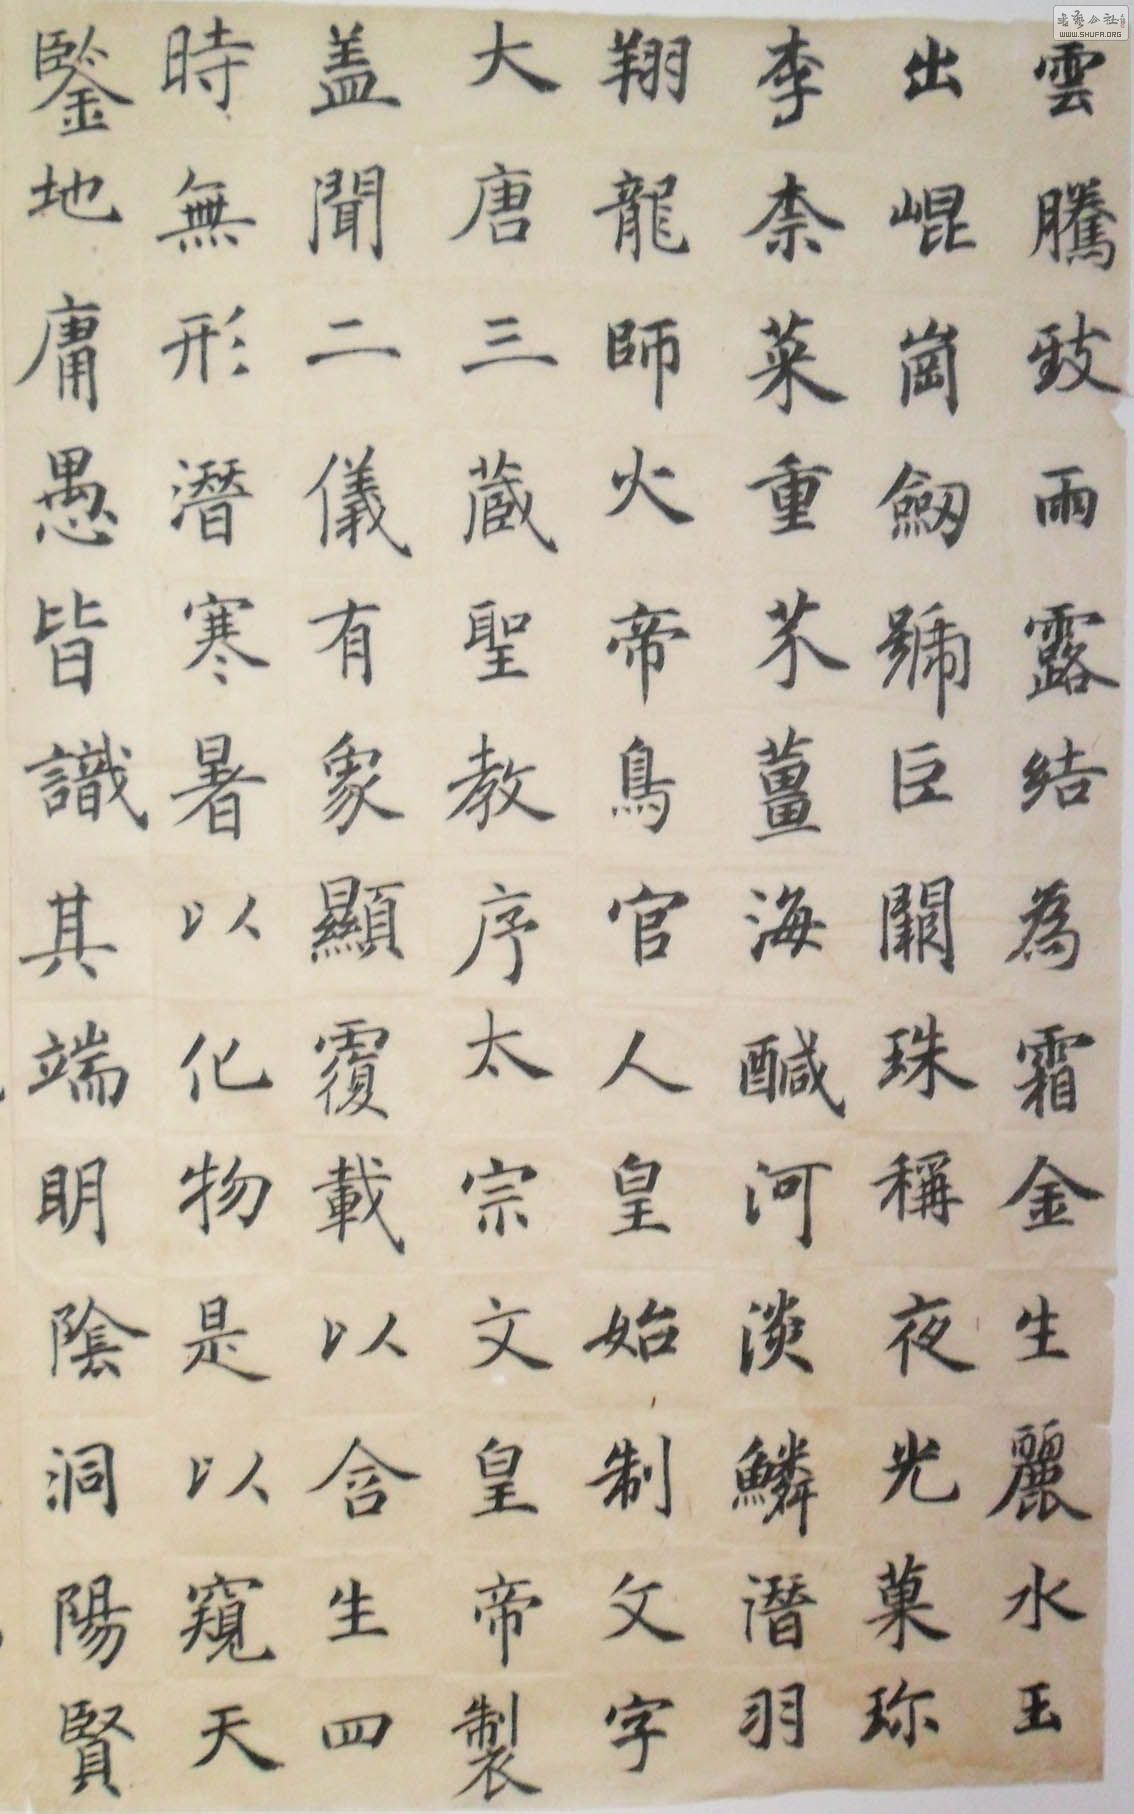 雲騰致雨露結為霜金生麗水玉
出崐崗劒號巨闕珠稱夜光菓珎
李柰菜重芥薑海醎河淡鱗潛羽
翔龍師火帝鳥官人皇始制文字
大唐三藏聖教序太宗文皇帝製
盖聞二儀有象顯覆載以含生四
時無形潛寒暑以化物是以窺天
鑒地庸愚皆識其端明陰洞陽賢
书艺公社
WWW.SHUFA.ORG